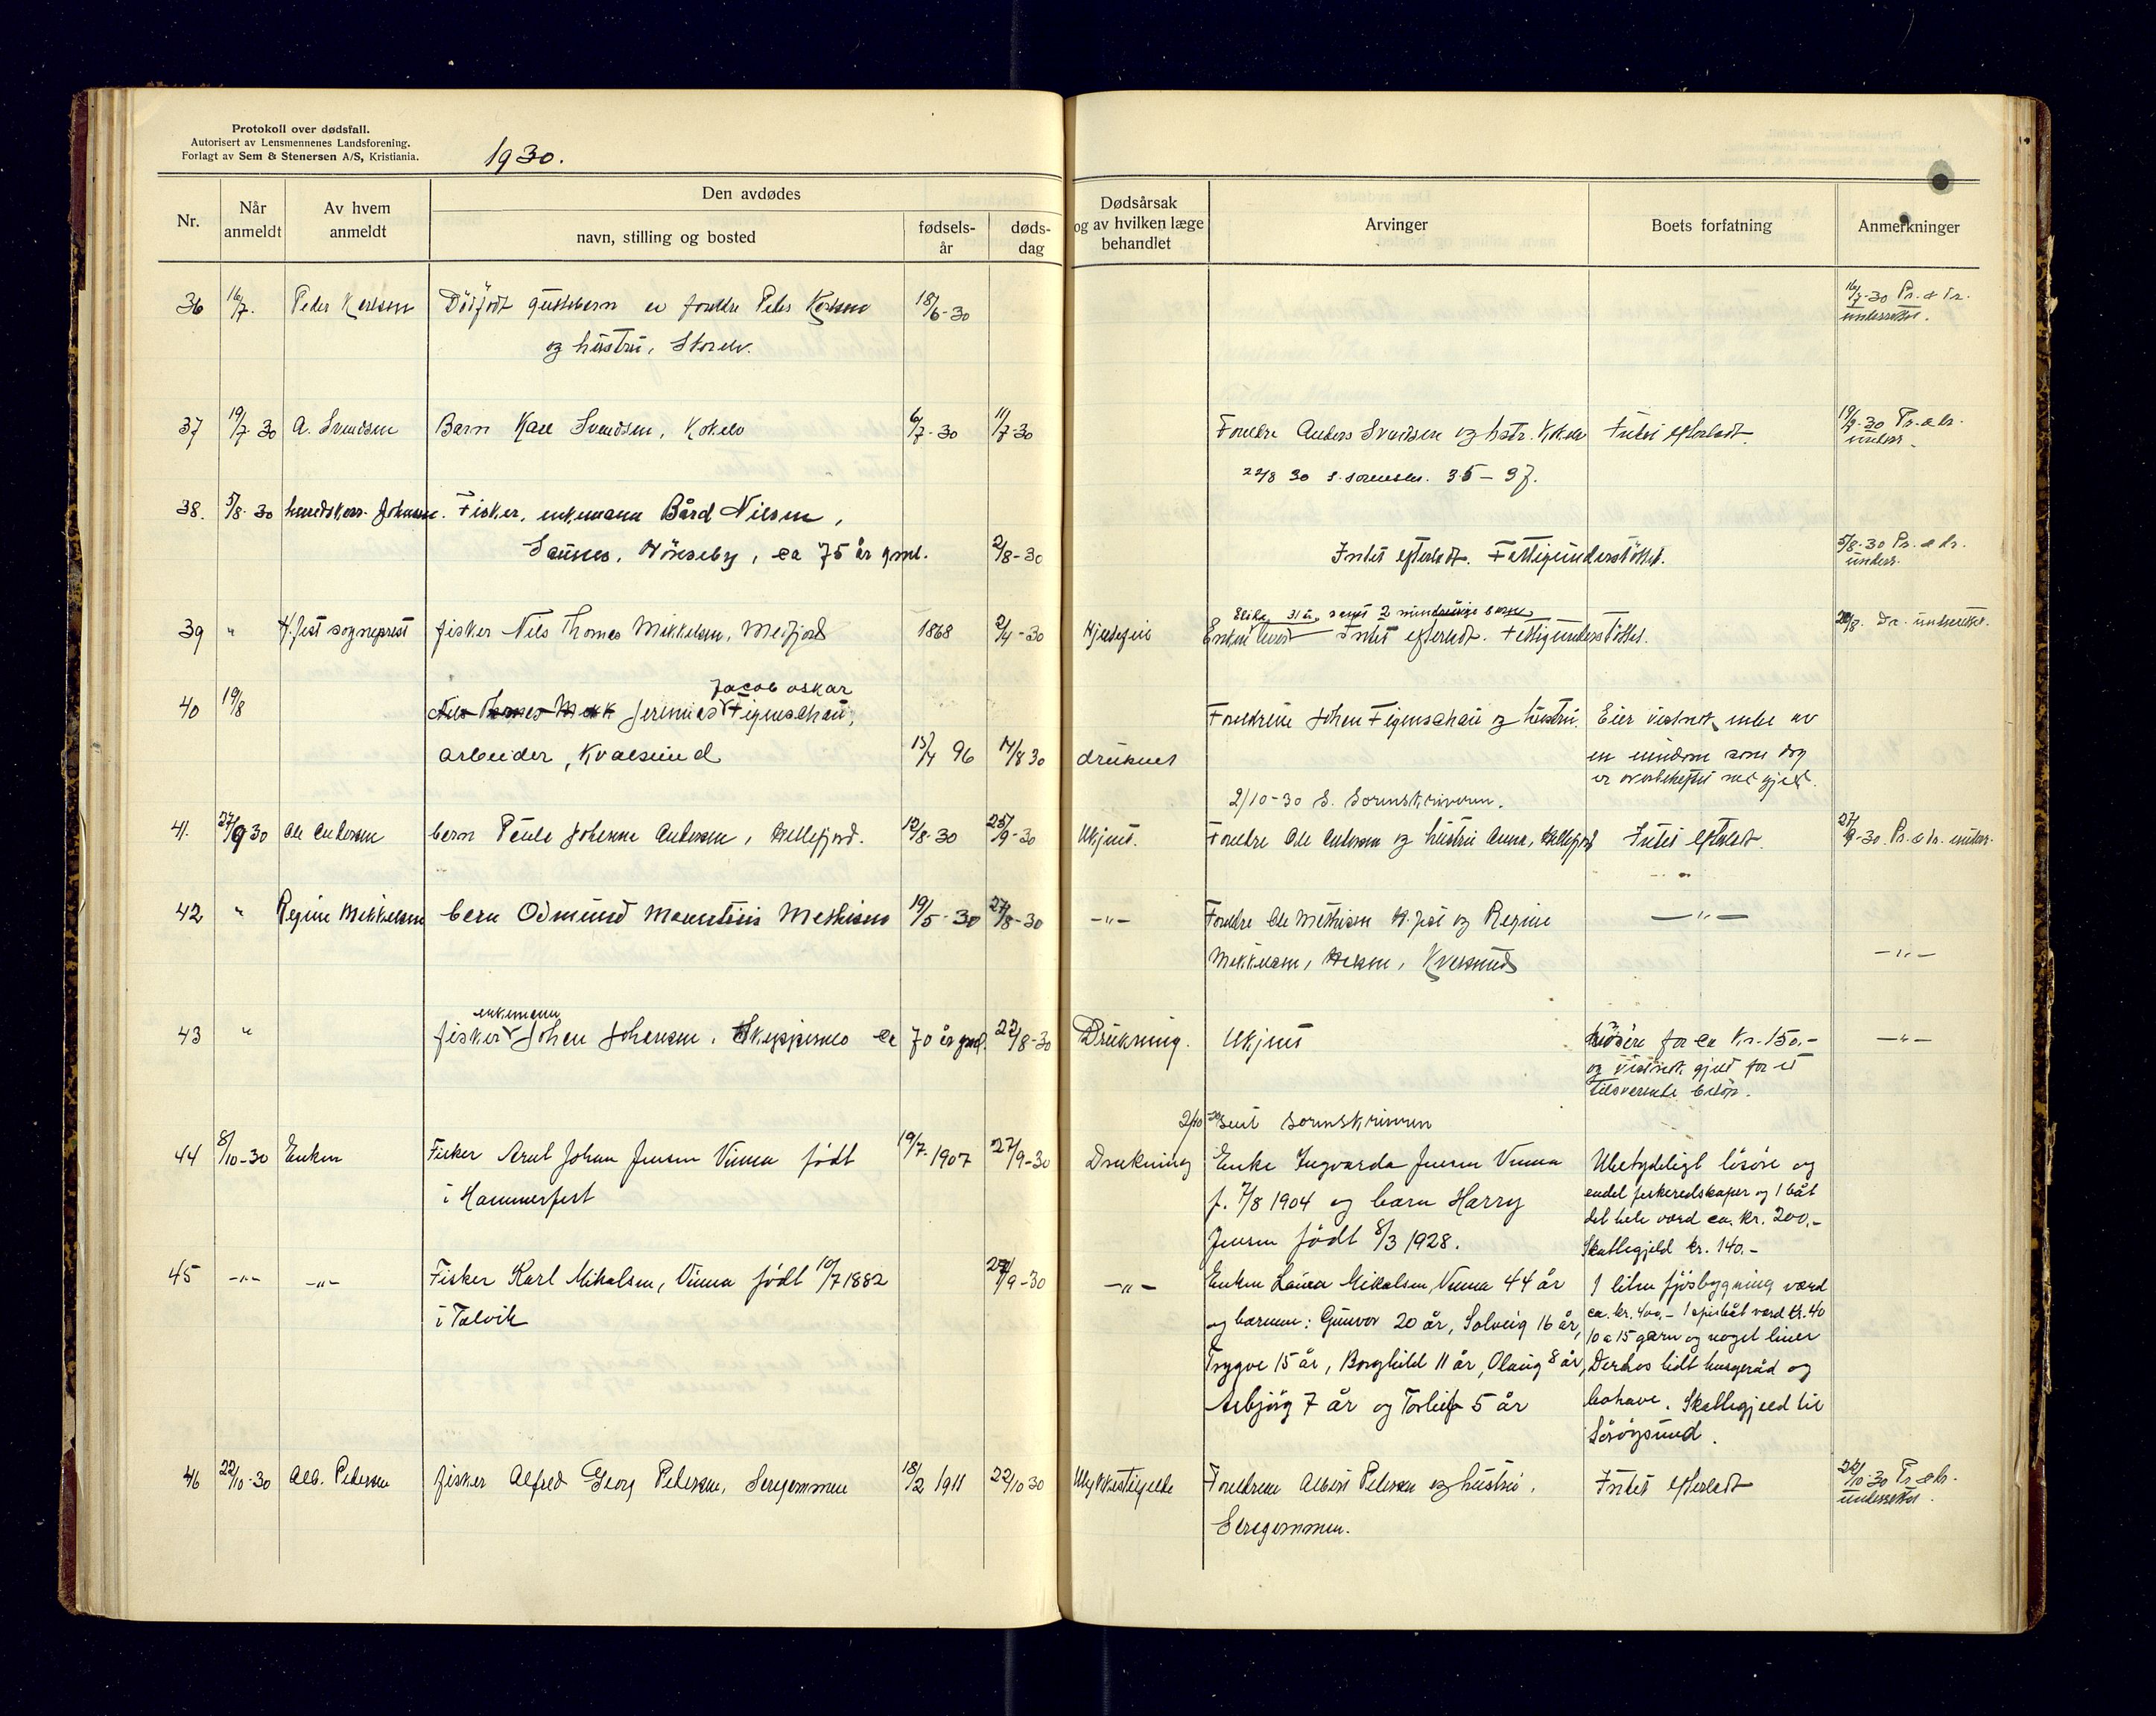 Protokoll over dødsfall.
Autorisert av Lensmennenes Landsforening.
Forlagt av Sem & Stenersen A/S, Kristiania.
1930.
Nr.
Når anmeldt
Av hvem anmeldt
Den avdødes
navn, stilling og bosted
fødsels-år
døds-dag
Dødsårsak og av hvilken læge behandlet
Arvinger
Boets forfatning
Anmerkninger
36 16/7. Peder Karlsen Dödfödt guttebarn av foreldre Peder Karlsen 18/6-30 16/7-30 Pr. & dr.
og hustru, Storelv. underrettet.
37 19/7 30 A. Svendsen Barn Kåre Svendsen, Kokelv 6/7-30 11/7-30 Foreldre Anders Svendsen og hstr. Kokelv Intet efterladt. 19/7-30 Pr. & dr.
underr.
22/8 30 s. sorenskr. 35-97.
38. 5/8-30 herredskass. Johansen. Fisker, enkemann Bård Nilsen,
ca 75 år gml. 2/8-30 Intet efterladt. Fattigunderstöttet. 5/8-30 Pr. & dr.
underr.
39 " H.fest sogneprest fisker Nils Thomas Mikkelsen, Meifjord 1868 2/4-30 Hjertefeil Enken Intet efterladt. Fattigunderstöttet. 20/8. Dr. underrettet.
31 år, samt 2 mindreårige barn
40 19/8 Nils Thomas Mikk Jeremias Jacob Oskar Figenschau,
arbeider, Kvalsund 15/4 96 14/8 30 druknet
Foreldrene Johan Figenschau og hustru. Eier vistnok enke av
en eiendom som dog
er overbeheftet med gjeld.
2/10-30 S. Sorenskriveren.
41. 27/9 30 Ole Andersen barn Paula Johanne Andersen, Hellefjord. 12/8-30 25/9-30 Ukjent. Foreldre Ole Andersen og hustru Anna, Hellefjord Intet efterladt. 27/9-30. Pr. & dr. underr.
42 " Regine Mikkelsen barn Odmund Mathisen 19/5-30 27/8-30 -"- Foreldre Ole Mathisen H.fest og Regine -"-
Mikkelsen, Kvalsund -"-
43 " fisker enkemann Johan Johansen, Skeppernes ca 70 år gml. 22/8-30 Drukning. Ukjent lösöre for ca kr. 150,- -"-
og vistnok gjeld for et
tilsvarende belöp.
2/10 30 sent sorenskriveren
44 8/10-30 Enken Fisker Arnt Johan Jensen Vinna födt 19/7. 1907 27/9-30 Drukning Enke Ingvarda Jensen Vinna Ubetydeligt lösöre og
i Hammerfest f. 7/8 1904 og barn Harry endel fiskeredskaper og 1 båt
Jensen födt 8/3 1928. det hele værd ca. kr. 200,-
Skattegjeld kr. 140.-
45 -"- -"- Fisker Karl Mikalsen, Vinna födt 10/7 1882 27/9-30 -"- Enken Laura Mikalsen, Vinna 44 år 1 liten fjösbygning værd
i Talvik og barnene: Gunvor 20 år, Solveig 16 år, ca. kr. 400,- 1 spissbåt værd kr. 40
10 a 15 garn og noget liner
Trygve 15 år, Borghild 11 år, Olaug 8 år, Derhos lidt husgeråd og
Asbjörg 7 år og Torleif 5 år bohave. Skattegjeld til
Söröysund.
46 22/10-30 Alb. Pedersen fisker Alfred Georg Pedersen, Seregammen 18/2 1911 22/10 30 Ulykkestilfelde Foreldrene Albert Pedersen og hustru, Intet efterladt 22/10-30 Pr. & dr.
Seregammen. underrettet.